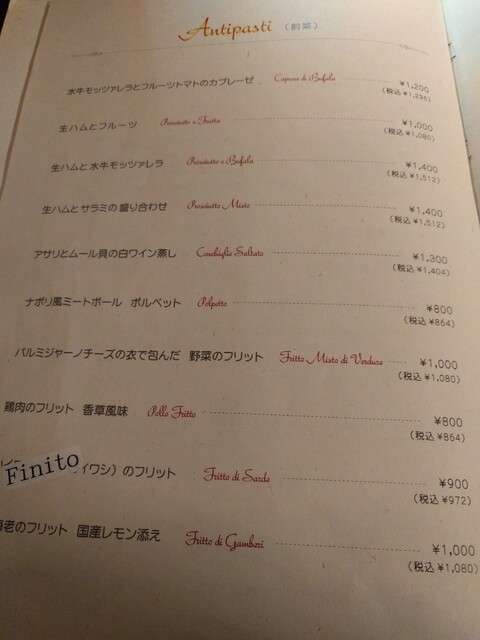 Antipasti （前菜）
水牛モッツァレラとフルーツトマトのカプレーゼ Caprese di Bufala ¥1,200
(税込 ¥1,296)
生ハムとフルーツ Prosciutto e Frutta ¥1,000
(税込 ¥1,080)
生ハムと水牛モッツァレラ Prosciutto e Bufala ¥1,400
(税込 ¥1,512)
生ハムとサラミの盛り合わせ Prosciutto Misto ¥1,400
(税込 ¥1,512)
アサリとムール貝の白ワイン蒸し Conchiglie Saltate ¥1,300
(税込 ¥1,404)
ナポリ風ミートボール ポルペット Polpetto ¥800
(税込 ¥864)
パルミジャーノチーズの衣で包んだ 野菜のフリット Fritto Misto di Verdure ¥1,000
(税込 ¥1,080)
鶏肉のフリット 香草風味 Pollo Fritto ¥800
(税込 ¥864)
Finito イワシ）のフリット Fritto di Sarde ¥900
(税込 ¥972)
海老のフリット 国産レモン添え Fritto di Gamberi ¥1,000
(税込 ¥1,080)